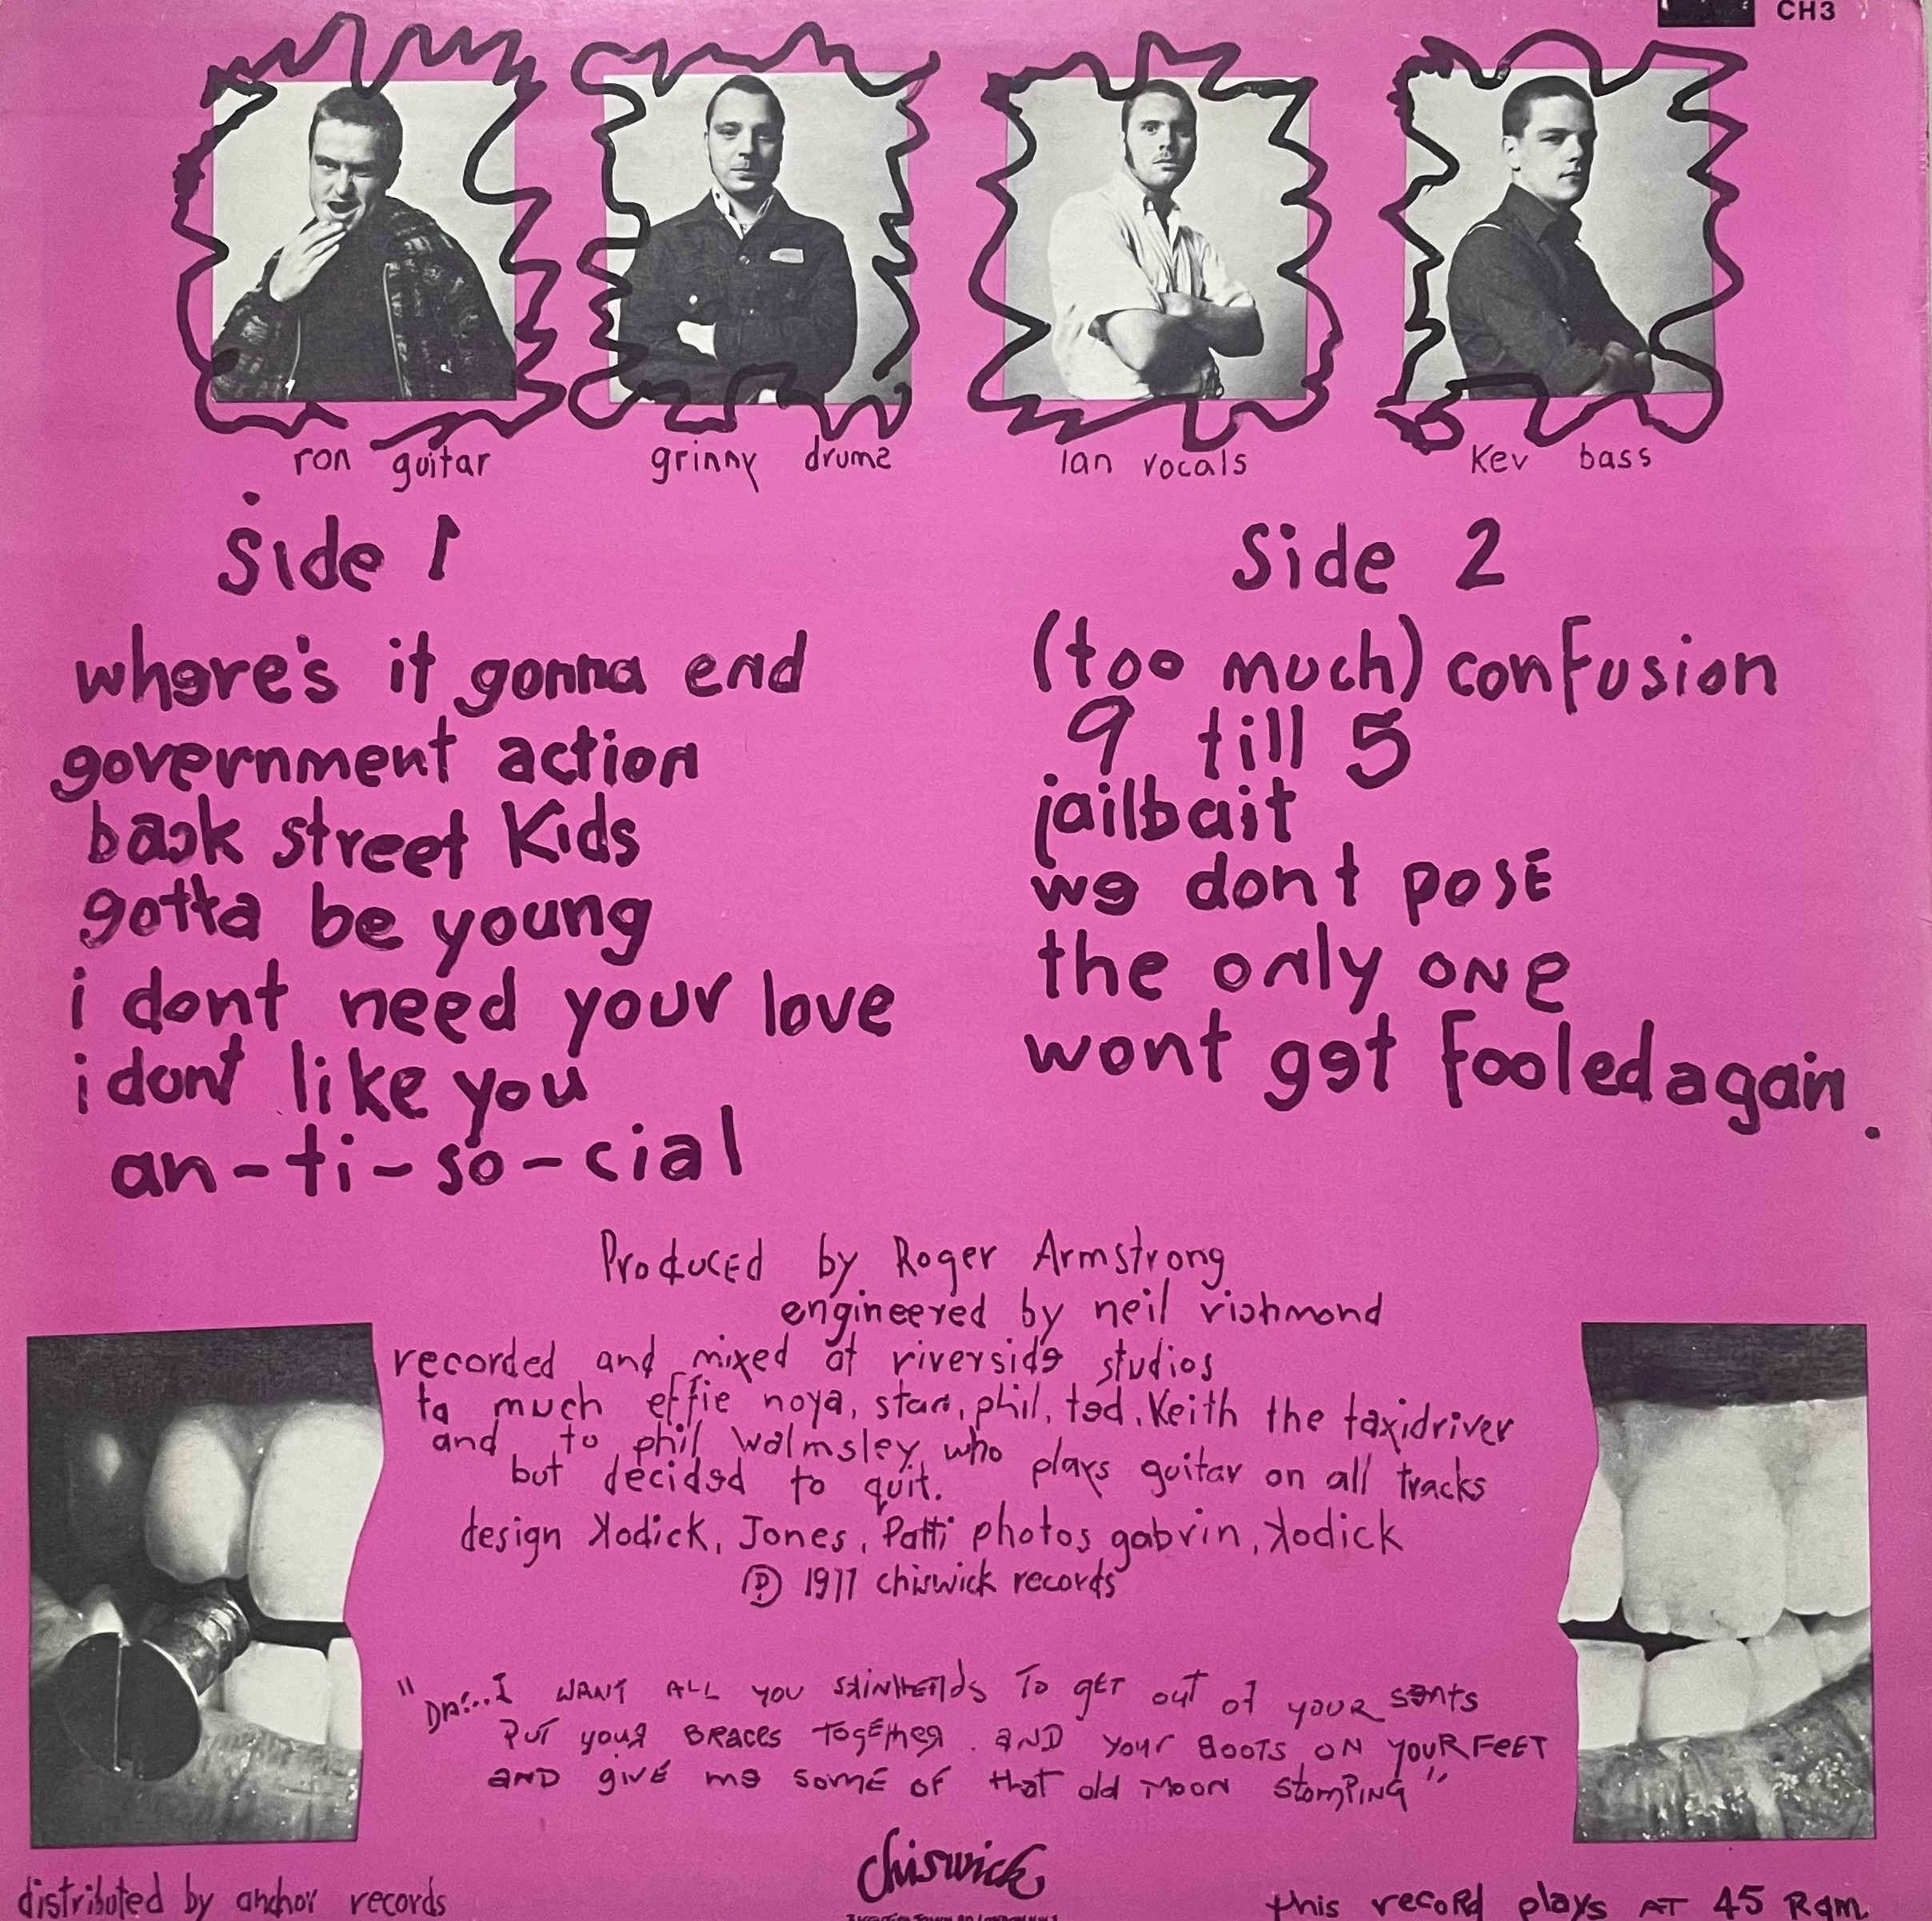 CH3
ron guitar
grinny drums
Ian vocals
Kev bass
Side 1
where's it gonna end
government action
back street Kids
gotta be young
i dont need your love
i dont like you
an-ti-so-cial
Side 2
(too much) confusion
9 till 5
jailbait
we dont pose
the only one
wont get fooled again.
Produced by Roger Armstrong
engineered by neil richmond
recorded and mixed at riverside studios
ta much effie noya, stan, phil, ted, Keith the taxidriver
and to phil walmsley who plays guitar on all tracks
but decided to quit.
design Kodick, Jones, Patti photos gabrin, Kodick
Ⓟ 1977 chiswick records
"I WANT ALL YOU SKINHEADS TO GET out of YOUR seats
PUT your BRACES TOGETHER. AND your BOOTS ON YOUR FEET
AND GIVE me some OF that old MOON STOMPING"
chiswick
distributed by anchor records
this record plays AT 45 Rpm